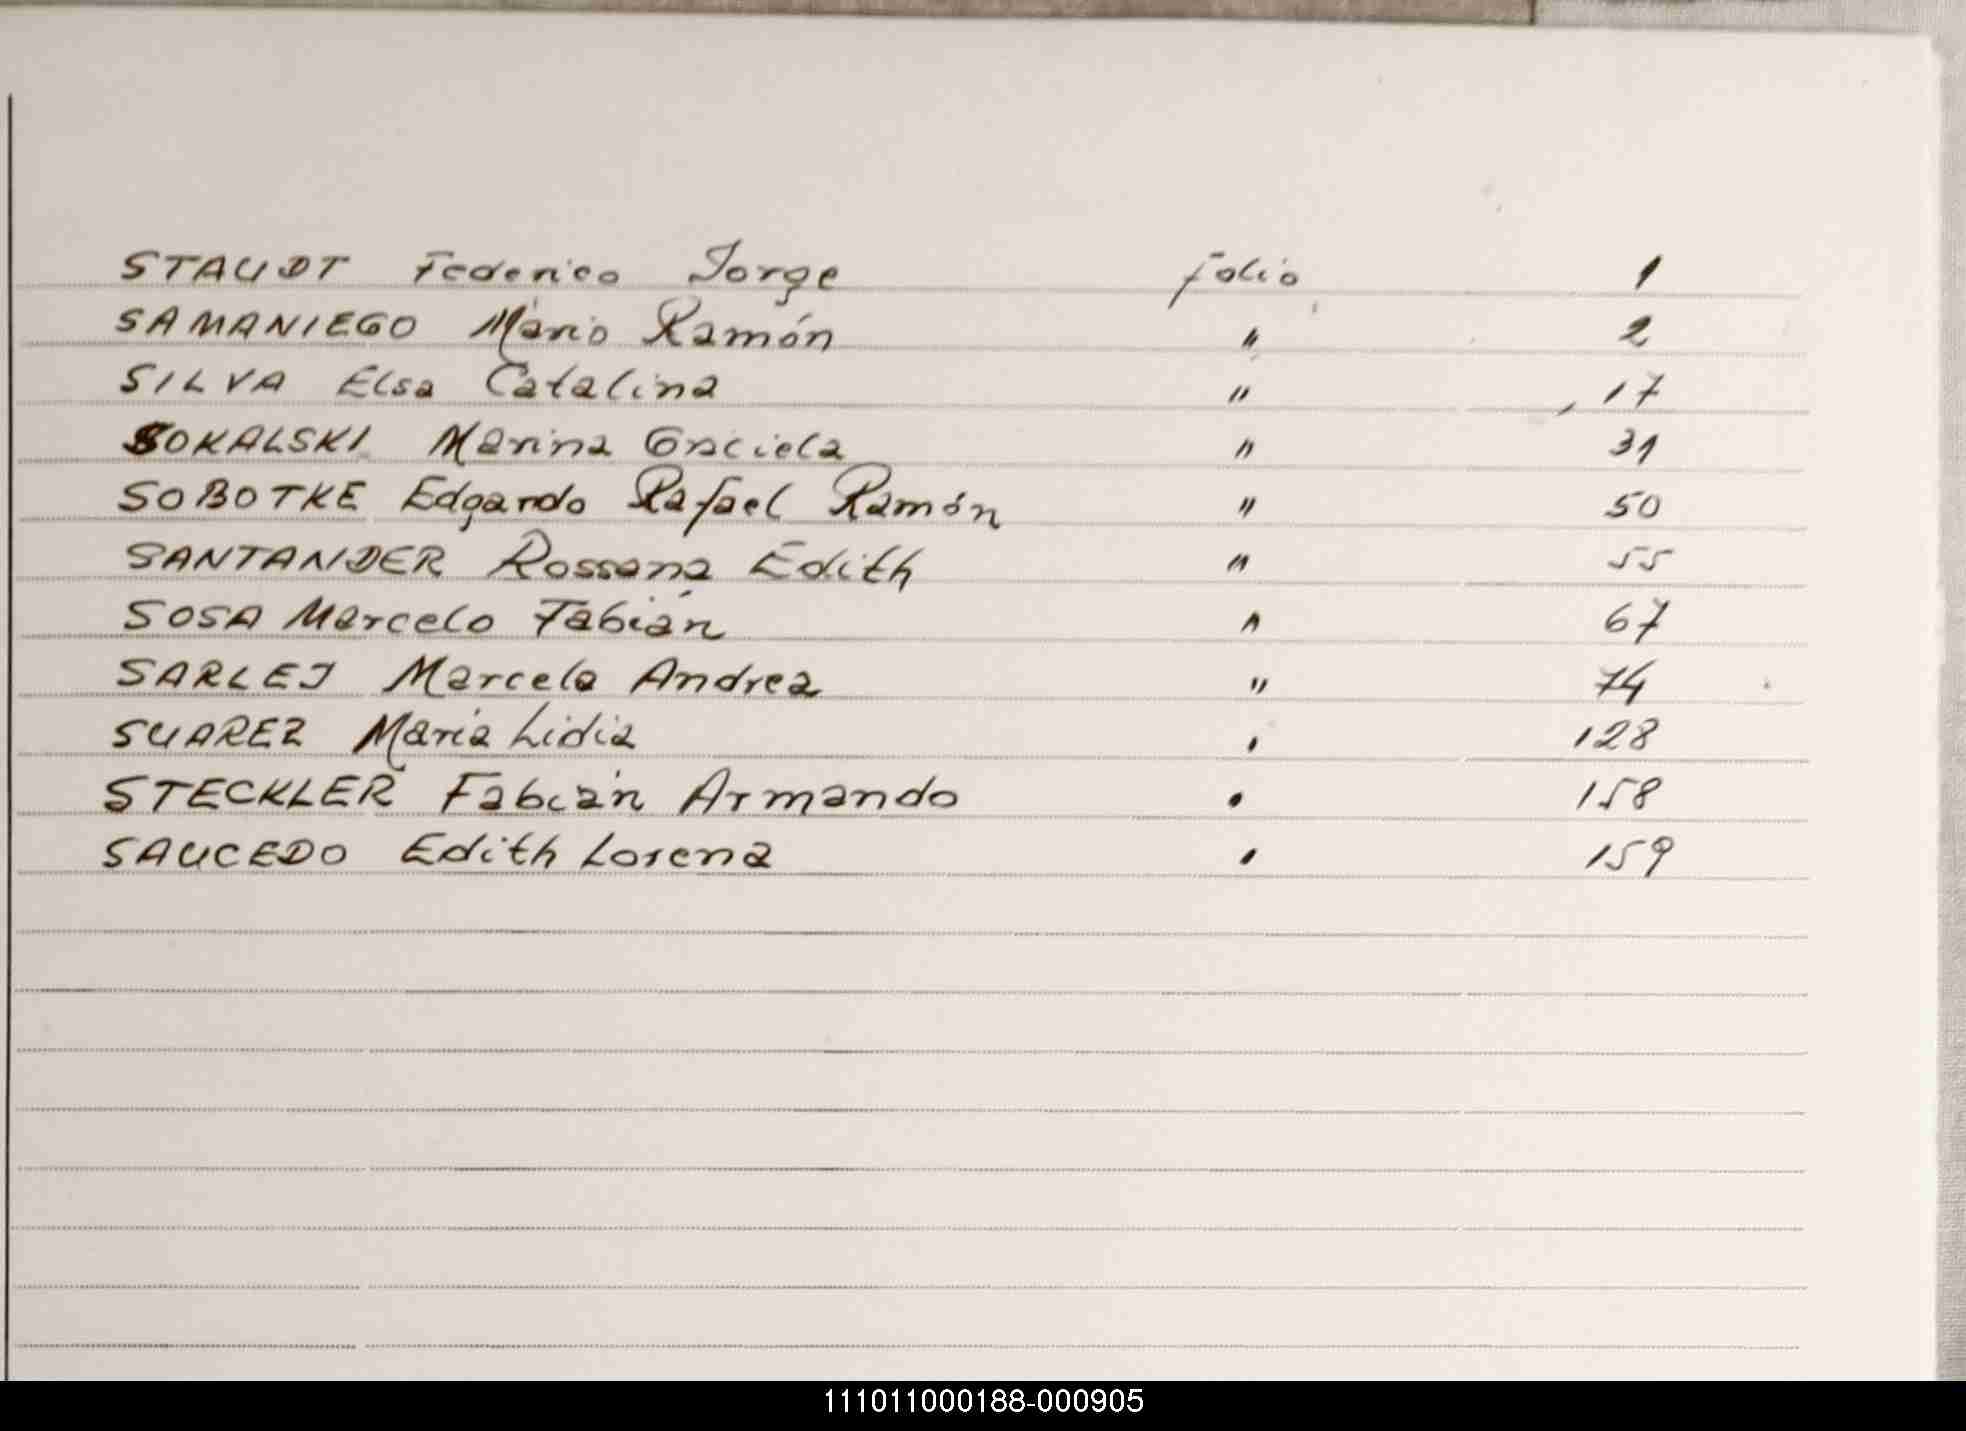 STAUDT Federico Jorge folio 1
SAMANIEGO Mario Ramón " 2
SILVA Elsa Catalina " 17
SOKALSKI Marina Graciela " 31
SOBOTKE Edgardo Rafael Ramón " 50
SANTANDER Rossana Edith " 55
SOSA Marcelo Fabián " 67
SARLEJ Marcela Andrea " 74
SUAREZ María Lidia " 128
STECKLER Fabián Armando " 158
SAUCEDO Edith Lorena " 159
111011000188-000905